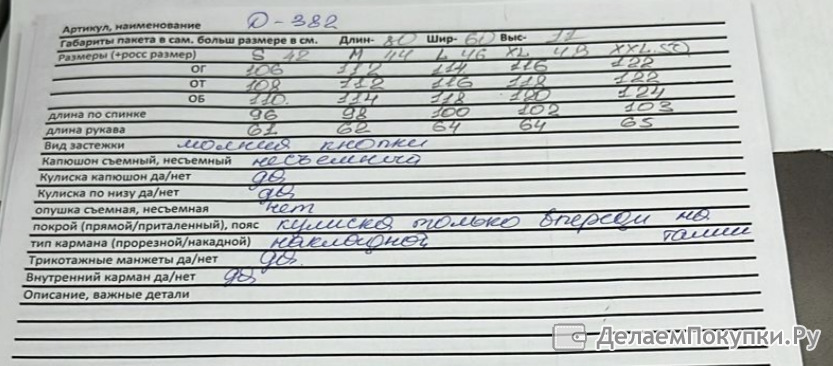 Артикул, наименование Д-382
Габариты пакета в сам. больш размере в см. Длин- 80 Шир- 60 Выс- 11
Размеры (+росс размер) S 42 M 44 L 46 XL 48 XXL 50
ОГ 106 112 114 116 122
ОТ 108 112 116 118 122
ОБ 110. 114 118 120 124
длина по спинке 96 98 100 102 103
длина рукава 61 62 64 64 65
Вид застежки молния кнопки
Капюшон съемный, несъемный несъемный
Кулиска капюшон да/нет да
Кулиска по низу да/нет да
опушка съемная, несъемная нет
покрой (прямой/приталенный), пояс кулиска только впереди на талии
тип кармана (прорезной/накадной) накладной
Трикотажные манжеты да/нет да
Внутренний карман да/нет да
Описание, важные детали
ДелаемПокупки.Ру